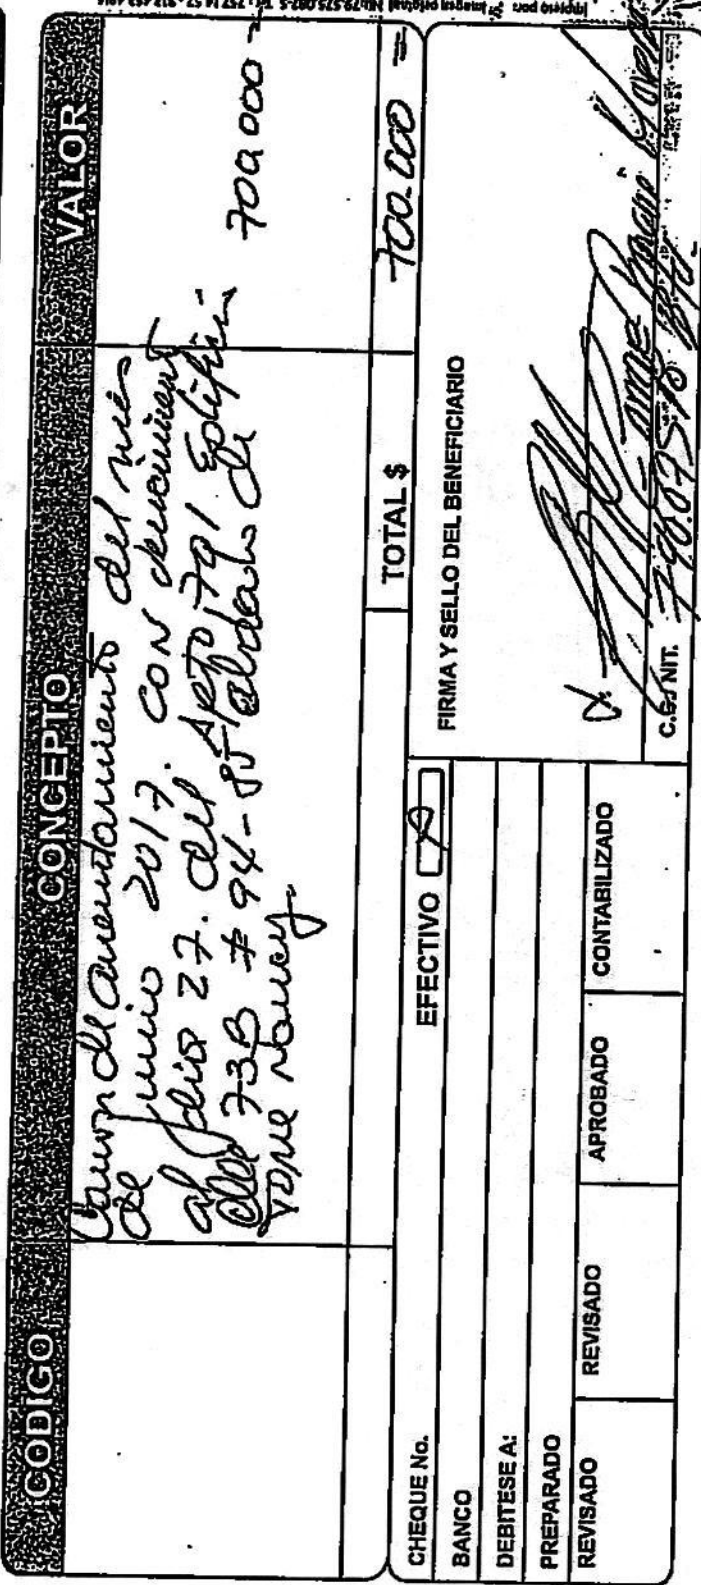 CODIGO CONCEPTO VALOR
Canon de arrendamiento del mes
de junio 2017. CON vencimiento
al dia 27. del Apto 701 Edificio
73B # 94-85 de 700.000 -
Nancy
TOTAL $ 700.000 =
CHEQUE No. EFECTIVO
BANCO
DEBITESE A:
PREPARADO
REVISADO REVISADO APROBADO CONTABILIZADO
FIRMA Y SELLO DEL BENEFICIARIO
C.C./NIT.